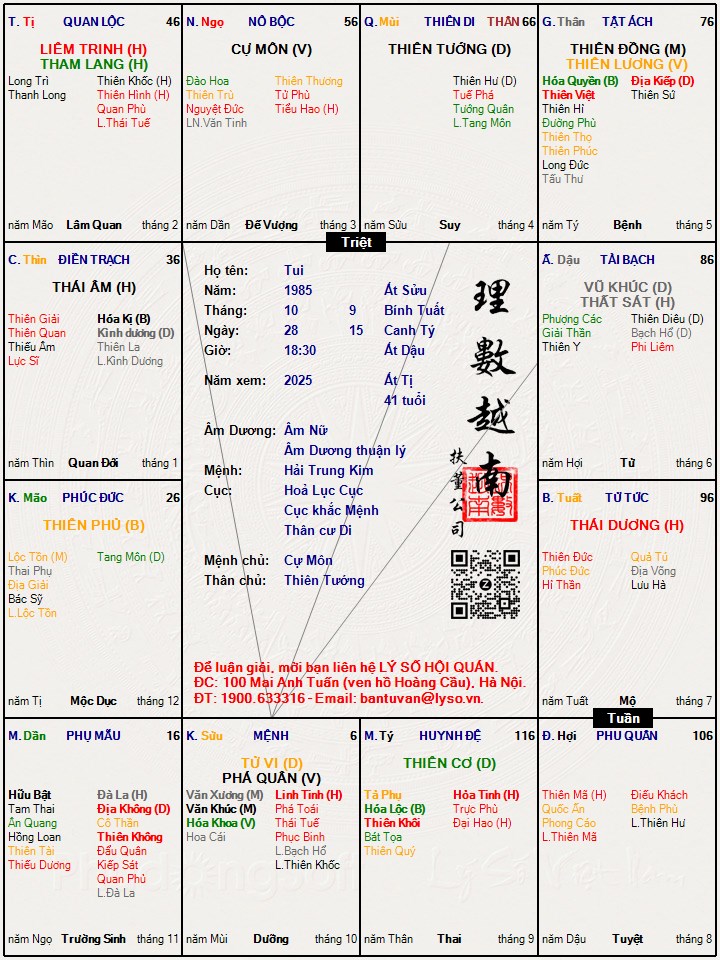 T. Tị QUAN LỘC 46
LIÊM TRINH (H)
THAM LANG (H)
Long Trì Thiên Khốc (H)
Thanh Long Thiên Hình (H)
Quan Phù
L.Thái Tuế
năm Mão Lâm Quan tháng 2
N. Ngọ NÔ BỘC 56
CỰ MÔN (V)
Đào Hoa Thiên Thương
Thiên Trù Tử Phù
Nguyệt Đức Tiểu Hao (H)
LN.Văn Tinh
năm Dần Đế Vượng tháng 3
Q. Mùi THIÊN DI THÂN 66
THIÊN TƯỚNG (D)
Thiên Hư (D)
Tuế Phá
Tướng Quân
L.Tang Môn
năm Sửu Suy tháng 4
G. Thân TẬT ÁCH 76
THIÊN ĐỒNG (M)
THIÊN LƯƠNG (V)
Hóa Quyền (B) Địa Kiếp (D)
Thiên Việt Thiên Sứ
Thiên Hỉ
Đường Phù
Thiên Thọ
Thiên Phúc
Long Đức
Tấu Thư
năm Tý Bệnh tháng 5
Triệt
C. Thìn ĐIỀN TRẠCH 36
THÁI ÂM (H)
Thiên Giải Hóa Kị (B)
Thiên Quan Kình dương (D)
Thiếu Âm Thiên La
Lực Sĩ L.Kình Dương
năm Thìn Quan Đới tháng 1
Họ tên: Tui
Năm: 1985 Ất Sửu
Tháng: 10 9 Bính Tuất
Ngày: 28 15 Canh Tý
Giờ: 18:30 Ất Dậu
Năm xem: 2025 Ất Tị
41 tuổi
Âm Dương: Âm Nữ
Âm Dương thuận lý
Mệnh: Hải Trung Kim
Cục: Hoả Lục Cục
Cục khắc Mệnh
Thân cư Di
Mệnh chủ: Cự Môn
Thân chủ: Thiên Tướng
理數越南
扶董公司
Để luận giải, mời bạn liên hệ LÝ SỐ HỘI QUÁN.
ĐC: 100 Mai Anh Tuấn (ven hồ Hoàng Cầu), Hà Nội.
ĐT: 1900.633316 - Email: bantuvan@lyso.vn.
Ấ. Dậu TÀI BẠCH 86
VŨ KHÚC (D)
THẤT SÁT (H)
Phượng Các Thiên Diêu (D)
Giải Thần Bạch Hổ (D)
Thiên Y Phi Liêm
năm Hợi Tử tháng 6
K. Mão PHÚC ĐỨC 26
THIÊN PHỦ (B)
Lộc Tồn (M) Tang Môn (D)
Thai Phụ
Địa Giải
Bác Sỹ
L.Lộc Tồn
năm Tị Mộc Dục tháng 12
B. Tuất TỬ TỨC 96
THÁI DƯƠNG (H)
Thiên Đức Quả Tú
Phúc Đức Địa Võng
Hỉ Thần Lưu Hà
năm Tuất Mộ tháng 7
Tuần
M. Dần PHỤ MẪU 16
Hữu Bật Đà La (H)
Tam Thai Địa Không (D)
Ân Quang Cô Thần
Hồng Loan Thiên Không
Thiên Tài Đẩu Quân
Thiếu Dương Kiếp Sát
Quan Phủ
L.Đà La
năm Ngọ Trường Sinh tháng 11
K. Sửu MỆNH 6
TỬ VI (D)
PHÁ QUÂN (V)
Văn Xương (M) Linh Tinh (H)
Văn Khúc (M) Phá Toái
Hóa Khoa (V) Thái Tuế
Hoa Cái Phục Binh
L.Bạch Hổ
L.Thiên Khốc
năm Mùi Dưỡng tháng 10
M. Tý HUYNH ĐỆ 116
THIÊN CƠ (D)
Tả Phụ Hỏa Tinh (H)
Hóa Lộc (B) Trực Phù
Thiên Khôi Đại Hao (H)
Bát Tọa
Thiên Quý
năm Thân Thai tháng 9
Đ. Hợi PHU QUÂN 106
Thiên Mã (H) Điếu Khách
Quốc Ấn Bệnh Phù
Phong Cáo L.Thiên Hư
L.Thiên Mã
năm Dậu Tuyệt tháng 8